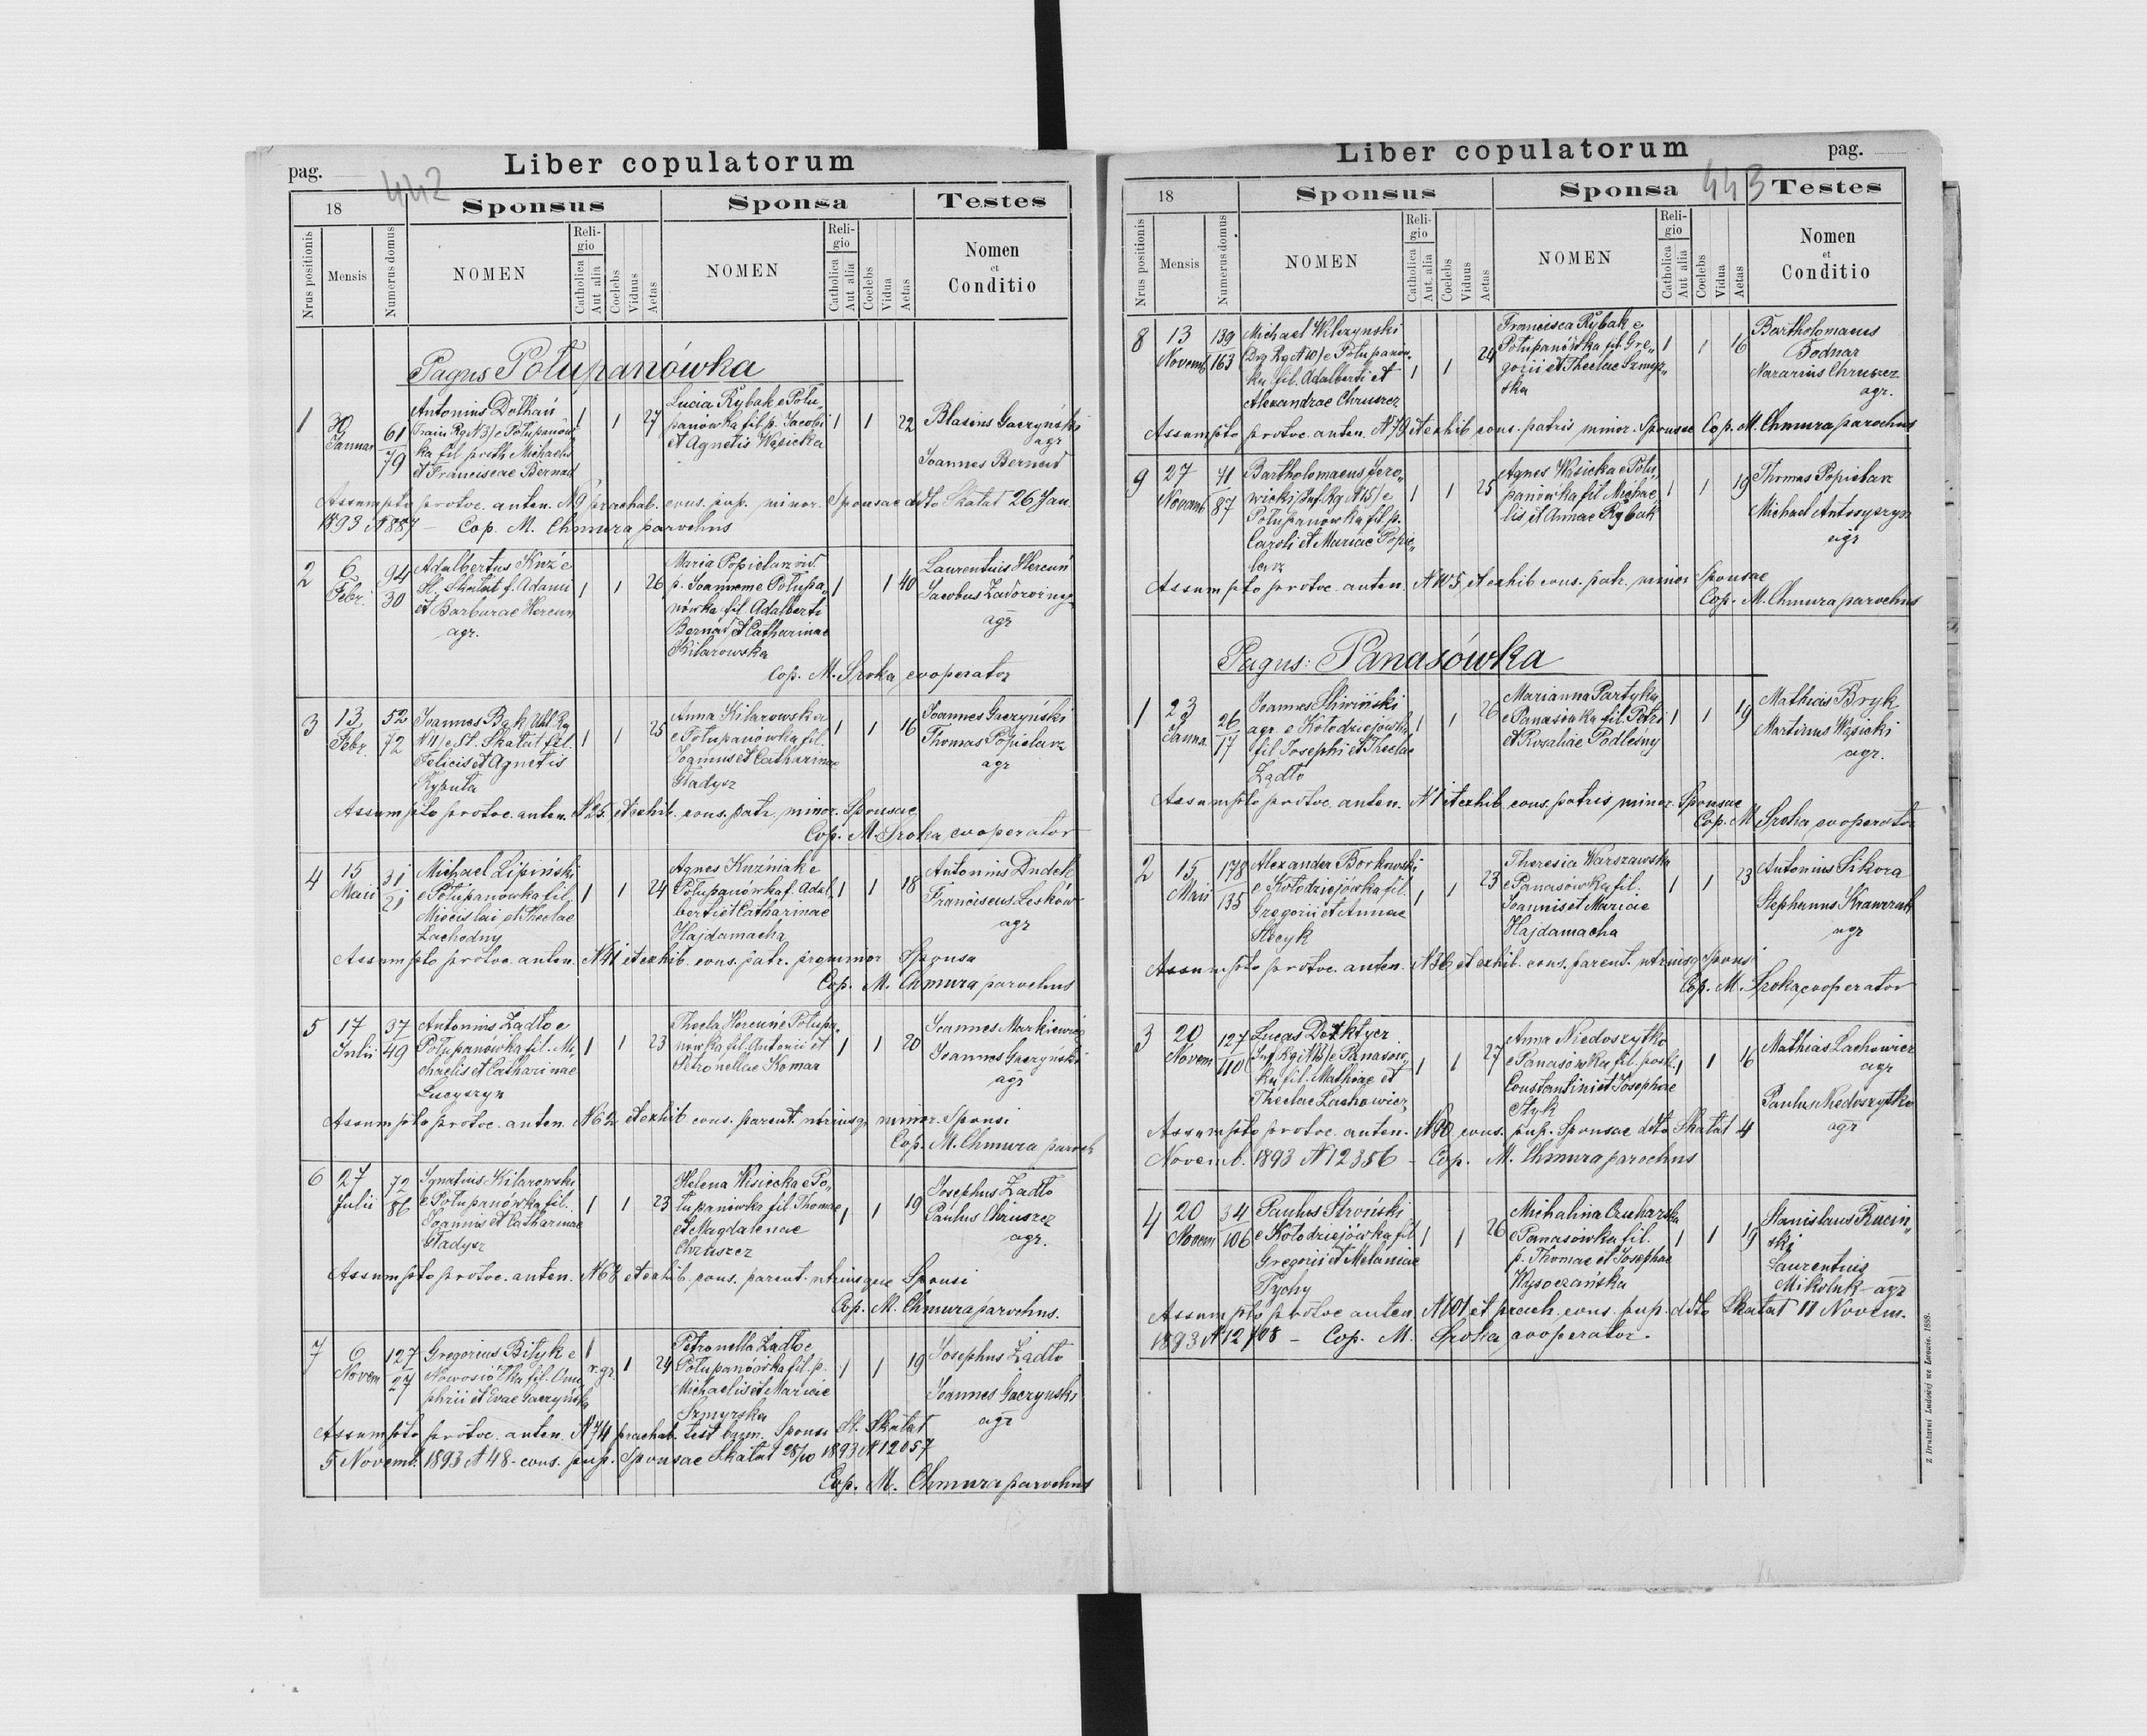 Liber copulatorum
pag.
442
18
Sponsus
Sponsa
Testes
Nrus positionis
Mensis
Numerus domus
NOMEN
Religio
Catholica
Aut alia
Coelebs
Viduus
Aetas
NOMEN
Religio
Catholica
Aut alia
Coelebs
Vidua
Aetas
Nomen
et
Conditio
Pagus Połupanówka
1
30
Januar
61
79
Antonius Dołhań
Train Rg N3/ e Połupanów
ka fil. Michaelis
et Franciscae Bernad
1 1 27
Lucia Rybak e Połu„
panówka fil. p. Jacobi
et Agnetis Wąsicka
1 1 22
Blasius Gaczyński
agr
Joannes Bernad
Assumpto protoc. anten. N9 praehab. cons. pup. minor. Sponsae ddto Skałat 26 Jan.
1893 N 887 – Cop. M. Chmura parochus
2
6
Febr.
94
30
Adalbertus Kuź e
St. Skałat f. Adami
et Barbarae Hercun
agr.
1 1 26
Maria Popielarz vid.
p. Joannem e Połupa„
nówka fil. Adalberti
Bernad et Catharinae
Kilarowska
1 1 40
Laurentius Hercuń
Jacobus Zadorożny
agr
Cop. M. Sroka cooperator
3
13
Febr.
52
72
Joannes Bąk Uhl Rg
N 11/ e St. Skałat fil.
Felicis et Agnetis
Ryputa
1 1 25
Anna Kilarowska
e Połupanówka fil.
Joannis et Catharinae
Gładysz
1 1 16
Joannes Gaczyński
Thomas Popielarz
agr
Assumpto protoc. anten. N 25. et exhib. cons. patr. minor. Sponsae
Cop. M. Sroka cooperator
4
15
Maii
31
21
Michael Lipiński
e Połupanówka fil.
Miecislai et Theclae
Zachodny
1 1 24
Agnes Kuźniak e
Połupanówka f. Adal„
berti et Catharinae
Hajdamacha
1 1 18
Antonius Dudek
Franciscus Leśków
agr
Assumpto protoc. anten. N 41 et exhib. cons. patr. pro minor Sponsa
Cop. M. Chmura parochus
5
17
Julii
37
49
Antonius Żądło e
Połupanówka fil. Mi„
chaelis et Catharinae
Lucyszyn
1 1 23
Thecla Hercuń e Połupa„
nówka fil. Antonii et
Petronellae Komar
1 1 20
Joannes Markiewicz
Joannes Gaczyński
agr
Assumpto protoc. anten. N 62 et exhib cons. parent. utriusq. minor. Sponsi
Cop. M. Chmura paroch
6
27
Julii
72
86
Ignatius Kilarowski
e Połupanówka fil.
Joannis et Catharinae
Gładysz
1 1 23
Helena Wąsicka e Po„
łupanówka fil. Thomae
et Magdalenae
Chruszcz
1 1 19
Josephus Żądło
Paulus Chruszcz
agr.
Assumpto protoc. anten. N 68 et exhib. cons. parent. utriusque Sponsi
Cop. M. Chmura parochus.
7
6
Novem
127
27
Gregorius Bityk e
Nowosiółka fil. Onu„
phrii et Evae Gaczyńska
1
r. gr.
1 24
Petronella Żądło e
Połupanówka fil. p.
Michaelis et Mariae
Szmyrska
1 1 19
Josephus Żądło
Joannes Gaczynski
agr
Assumpto protoc. anten. N 74 praehab. test. bann. Sponsi St. Skałat
5 Novemb. 1893 N 48 – cons. pup. Sponsae Skałat 28/10 1893 N 12057
Cop. M. Chmura parochus
Liber copulatorum
pag.
443
18
Sponsus
Sponsa
Testes
Nrus positionis
Mensis
Numerus domus
NOMEN
Religio
Catholica
Aut alia
Coelebs
Viduus
Aetas
NOMEN
Religio
Catholica
Aut alia
Coelebs
Vidua
Aetas
Nomen
et
Conditio
8
13
Novemb
139
163
Michael Wilczynski
Drg Rg N 10/ e Połupanów„
ka fil. Adalberti et
Alexandrae Chruszcz
1 1 24
Francisca Rybak e
Połupanówka fil. Gre„
gorii et Theclae Szmyr„
ska
1 1 16
Bartholomaeus
Bodnar
Nazarius Chruszcz
agr.
Assumpto protoc. anten. N 79 et exhib cons. patris minor. Sponsae Cop. M. Chmura parochus
9
27
Novemb
71
87
Bartholomaeus Jero„
wicki/ Inf. Rg N 15/ e
Połupanówka fil. p.
Caroli et Mariae Popie„
larz
1 1 25
Agnes Wąsicka e Połu„
panówka fil. Michae„
lis et Annae Rybak
1 1 19
Thomas Popielarz
Michael Antoszyszyn
agr
Assumpto protoc. anten. N 105 et exhib cons. patr. minor Sponsae
Cop. M. Chmura parochus
Pagus: Panasówka
1
23
Janua.
26
17
Joannes Śliwiński
agr. e Kołodziejówka
fil Josephi et Theclae
Żądło
1 1 26
Marianna Partyka
e Panasówka fil. Petri
et Rosaliae Podleśny
1 1 19
Mathias Bryk
Martinus Wąsicki
agr.
Assumpto protoc. anten. N 1 et exhib cons. patris minor. Sponsae
Cop. M Sroka cooperator
2
15
Maii
178
135
Alexander Borkowski
e Kołodziejówka fil.
Gregorii et Annae
Stecyk
1 1 23
Theresia Warszawska
e Panasówka fil.
Joannis et Mariae
Hajdamacha
1 1 23
Antonius Sikora
Stephanus Krawczuk
agr
Assumpto protoc. anten. N 36 et exhib. cons. parent. utriusq Sponsi
Cop. M. Sroka cooperator
3
20
Novem
127
110
Lucas
Inf. Rg N 15/ e Panasów„
ka fil. Mathiae et
Theclae Lachowicz
1 1 27
Anna Niedoszytko
e Panasówka fil. posth.
Constantini et Josephae
Styk
1 1 16
Mathias Lachowicz
agr
Paulus Niedoszytko
agr
Assumpto protoc. anten. N 90 cons. pup. Sponsae ddto Skałat 4
Novemb. 1893 N 12356 – Cop. M. Chmura parochus
4
20
Novem
34
106
Paulus Stroński
e Kołodziejówka fil
Gregorii et Melaniae
Tychy
1 1 26
Michalina Czuharska
e Panasówka fil.
p. Thomae et Josephae
Wysoczańska
1 1 19
Stanislaus Rucin„
ski
Laurentius
Mikoluk agr
Assumpto protoc anten. N 101 et praeh. cons. pup. ddto Skałat 11 Novem.
1893 N 12708 – Cop. M. Sroka cooperator.
Z Drukarni Ludowej we Lwowie. 1888.